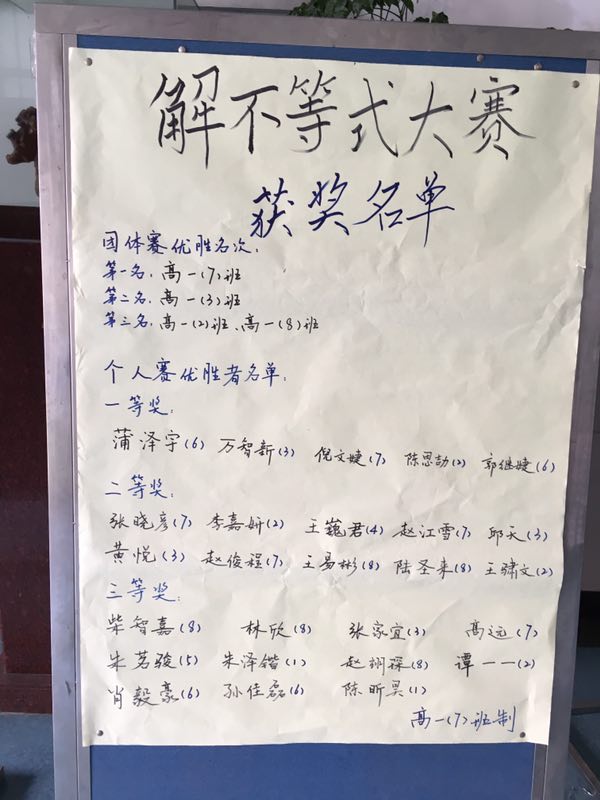 解不等式大赛
获奖名单
团体赛优胜名次:
第一名:高一(7)班
第二名:高一(3)班
第三名:高一(2)班、高一(8)班
个人赛优胜者名单:
一等奖:
蒲泽宇(6) 万智新(3) 倪文婕(7) 陈思劼(2) 郭继婕(6)
二等奖:
张晓彦(7) 李嘉妍(2) 王巍君(4) 赵江雪(7) 邱天(3)
黄悦(3) 赵俊程(7) 王易彬(8) 陆圣来(8) 王骕文(2)
三等奖:
柴智嘉(8) 林欣(8) 张家宜(3) 高远(7)
朱茗骏(5) 朱泽锴(1) 赵翊琛(8) 谭一一(2)
肖毅豪(6) 孙佳磊(6) 陈昕昊(1)
高一(7)班制